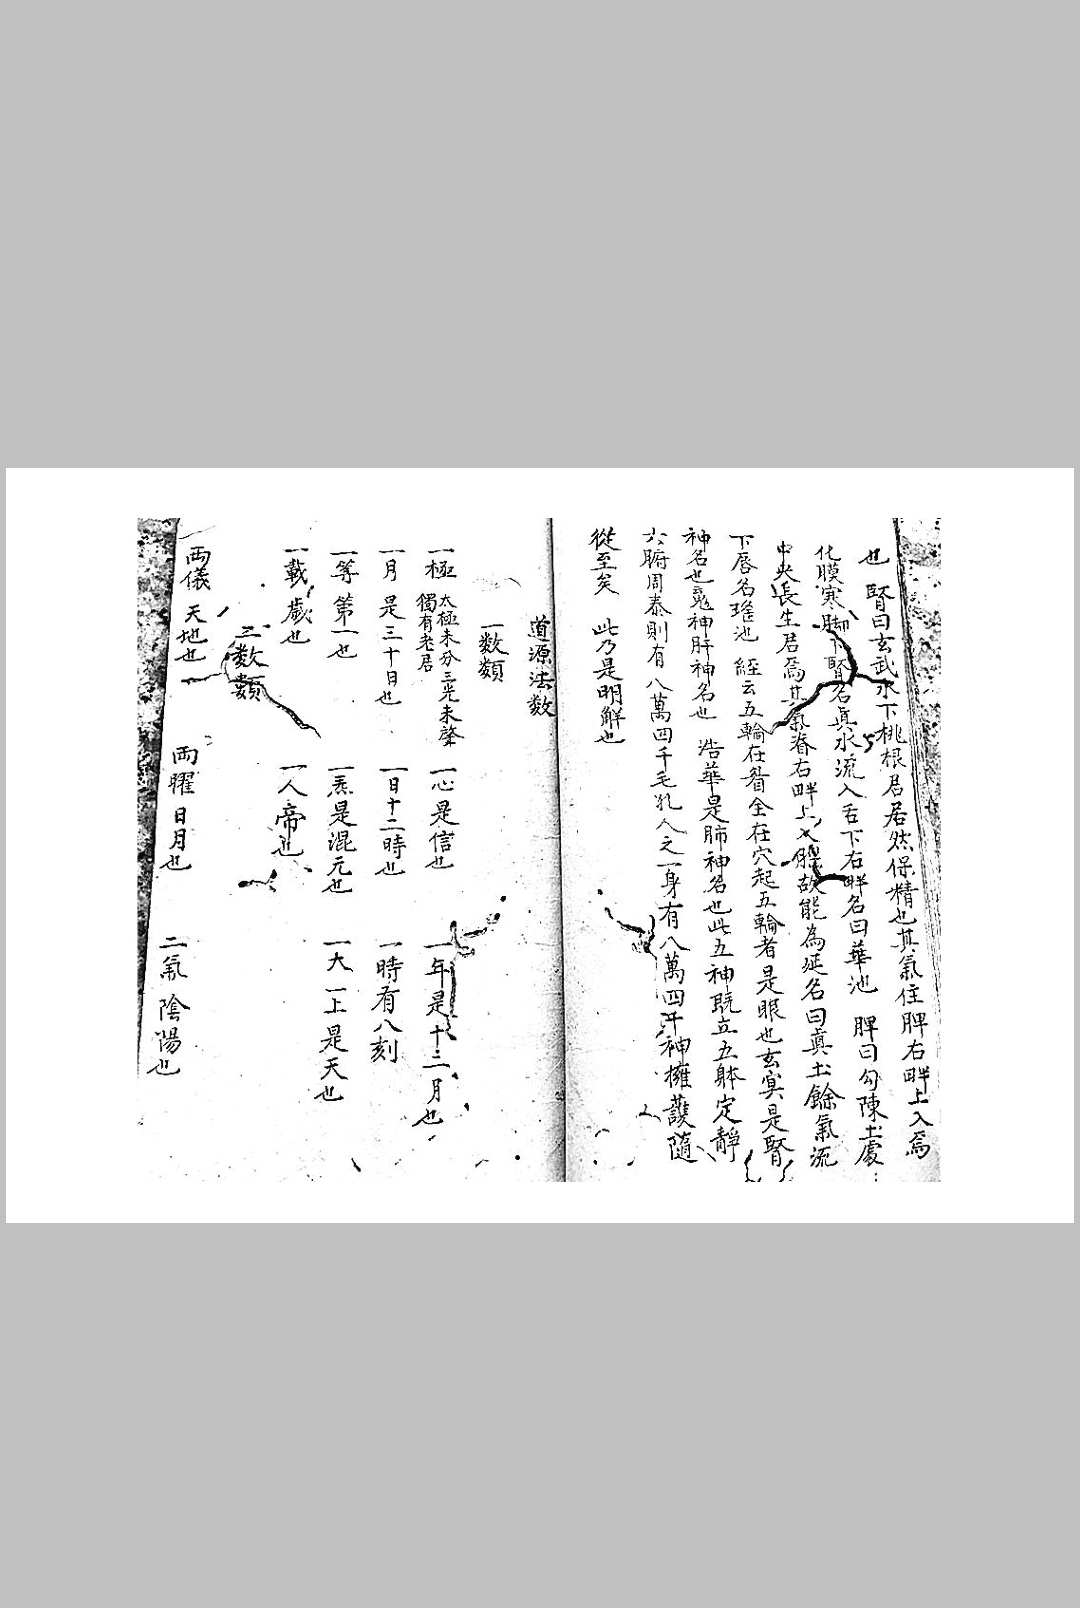 也　腎曰玄武水下桃根君居然保精也其氣住脾右畔上入焉
化膜寒脚下腎名真水流入舌下右畔名曰華池　脾曰勾陳土處
中央長生居焉其氣脊右畔上故能為延名曰真土餘氣流
下唇名瑤池　經云五輪在眥全在穴起五輪者是眼也玄冥是腎
神名也魂神肝神名也　浩華是肺神名也此五神既立五躰定靜
六腑周泰則有八萬四千毛孔人之一身有八萬四千神擁護隨
從至矣　此乃是明解也
道源法數
一數類
一極　太極未分三光未肇獨有老君　一心是信也　一年是十二月也
一月是三十日也　一日十二時也　一時有八刻
一等第一也　一炁是混元也　一大一上是天也
一載歲也　一人帝也
二數類
兩儀天地也　兩曜日月也　二氣陰陽也